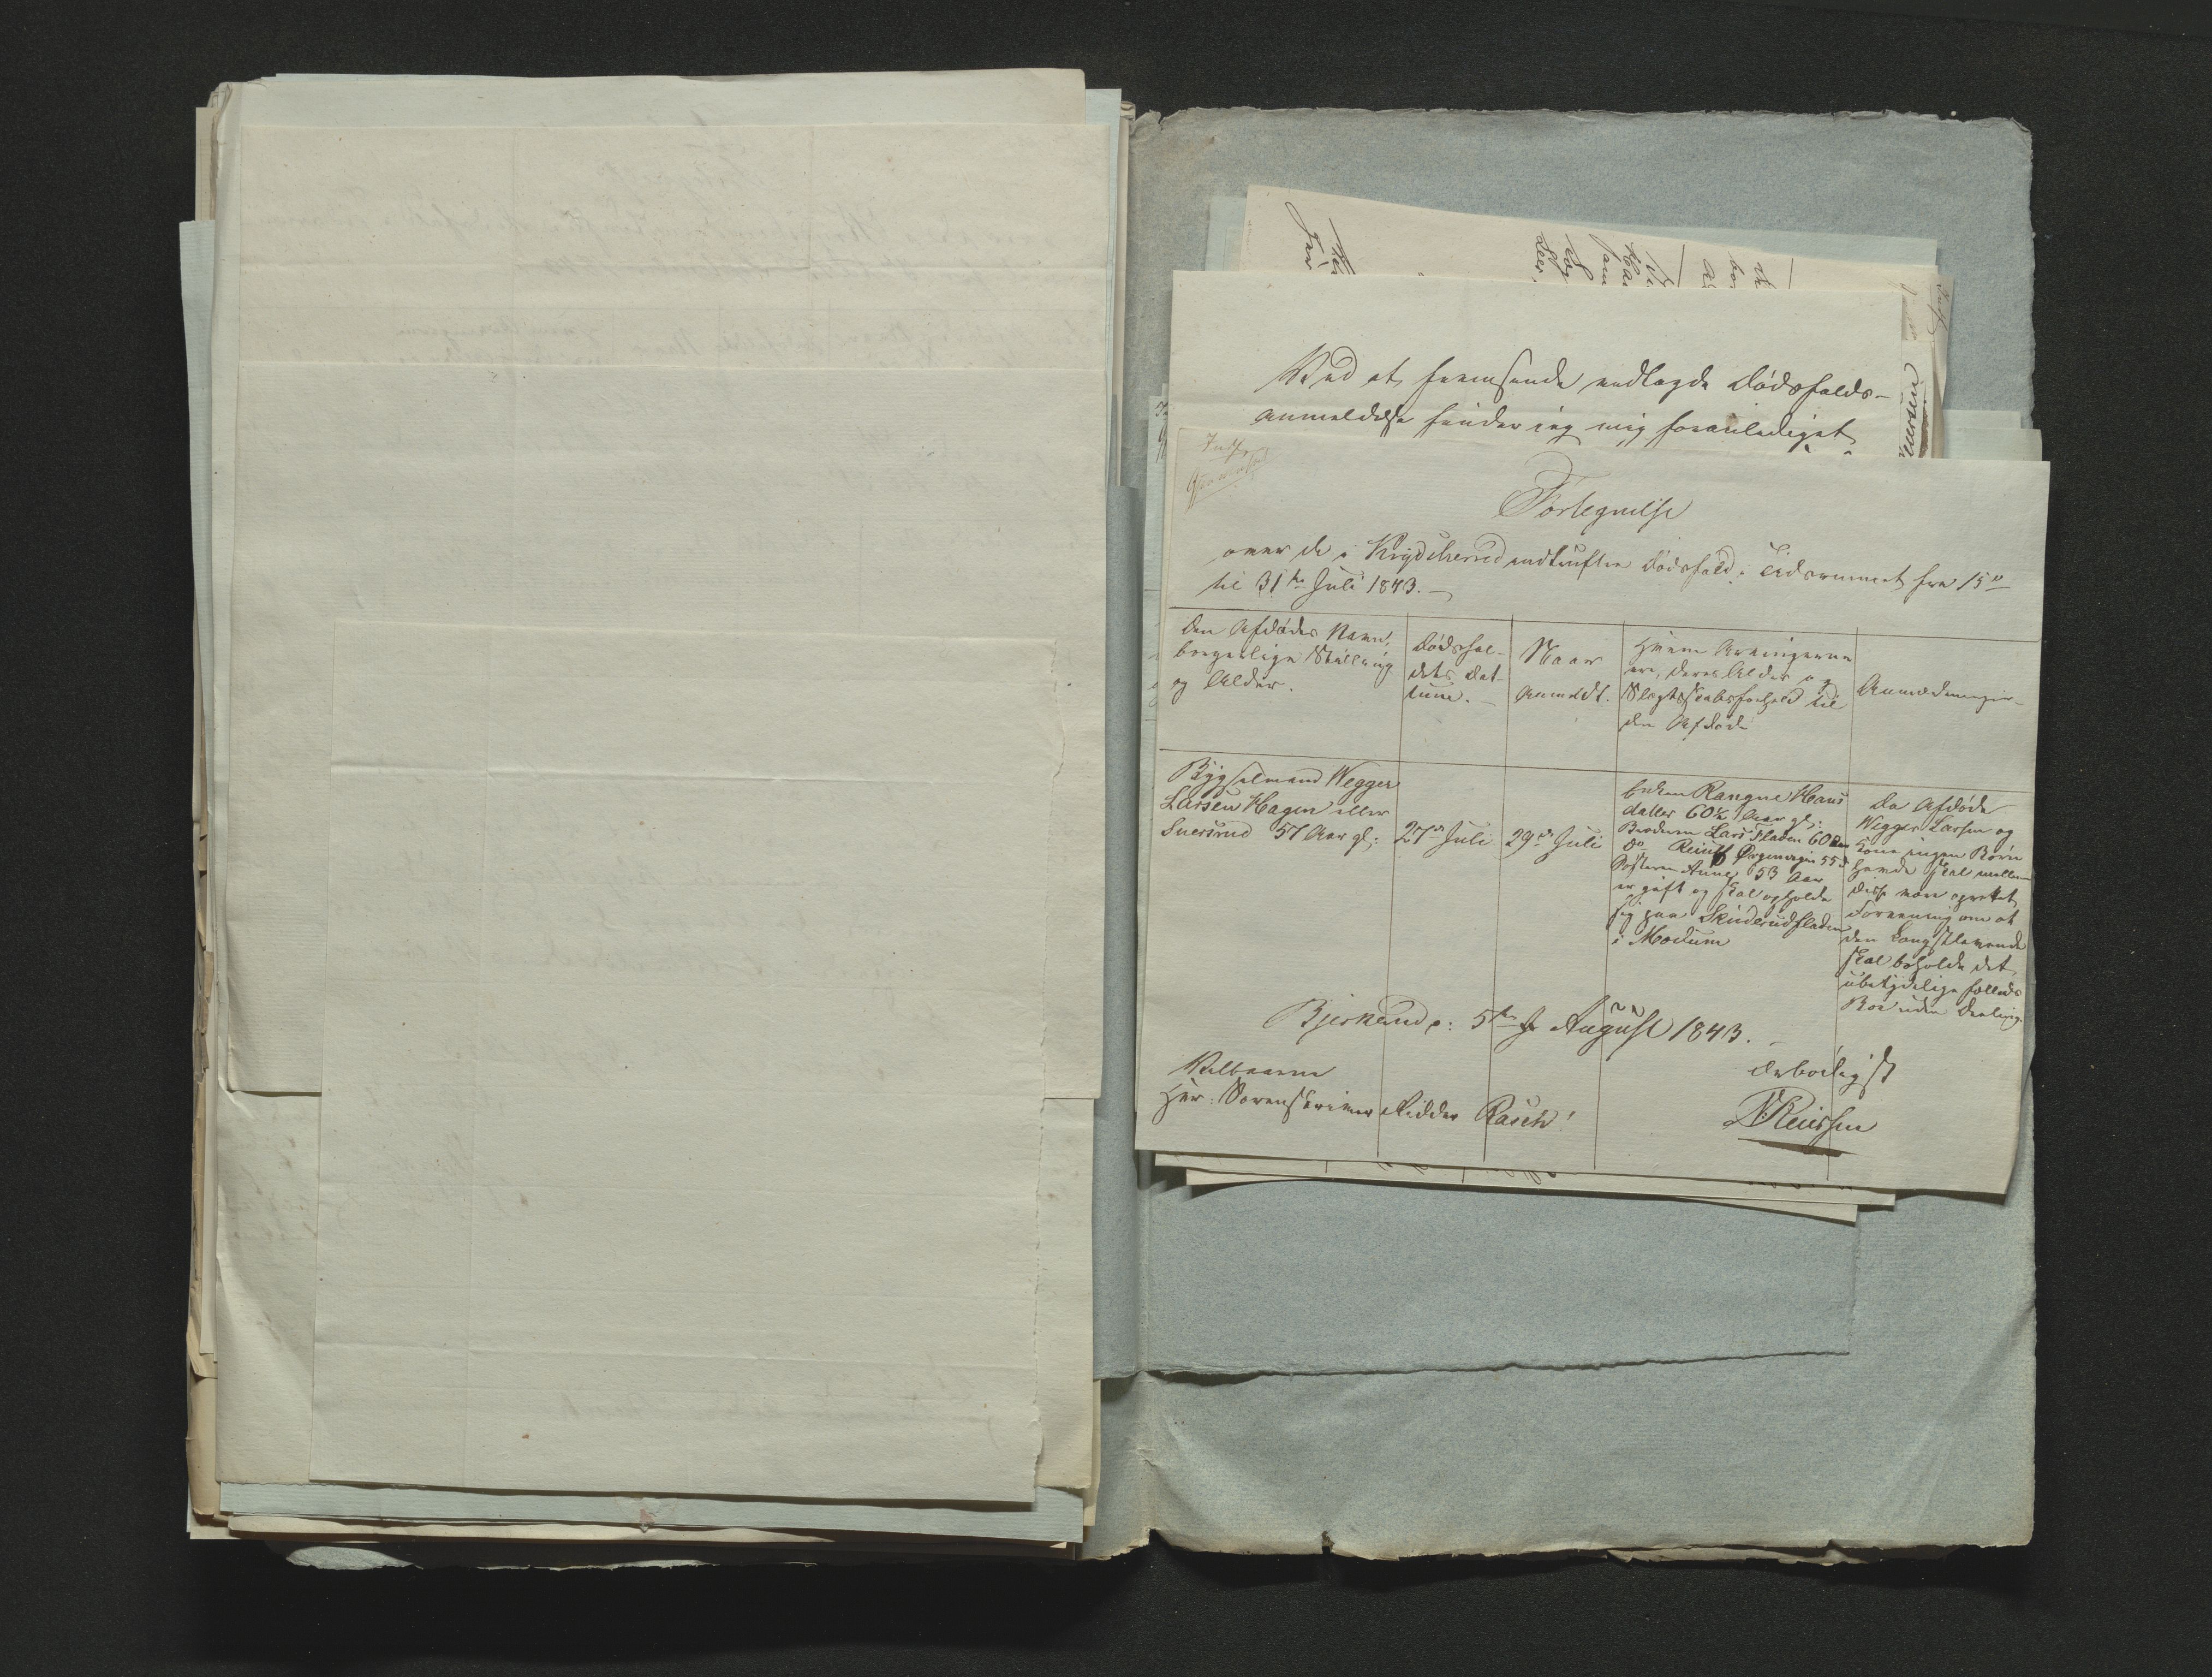 Ved at fremsende vedlagde Dødsfalds-
anmeldelse finder jeg mig foranlediget
Fortegnelse
over de i Krydsherred indtrufne Dødsfald i Tidsrummet fra 15de
til 31te Juli 1843.
Den Afdødes Navn,
borgerlige Stilling
og Alder.
Dødsfal-
dets Dat-
tum.
Naar
Anmeldt.
Hvem Arvingerne
ere, deres Alder og
Slægtskabsforhold til
den Afdøde
Anmærkninger
Bygselmand Wegger
Larsen Hagen eller
Snersrud 57 Aar gl:
27de Juli
29de Juli
Enken Rangne Hans
datter 60 Aar gl:
Broderen Lars Fladen 60 Aar
Do 55
Søsteren Anne 53 Aar
er gift og skal opholde
sig paa Skinderudfladen
i Modum
Da Afdøde
Wegger Larsen og
Kone ingen Børn
havde skal mellem
disse være oprettet
Forening om at
den Længstlevende
skal beholde det
ubetydelige fælleds
Boe uden Deeling.
Bjerkerud d: 5te August 1843.
Velbaarne
Herr Sorenskriver Ridder Rasch!
Ærbødigst